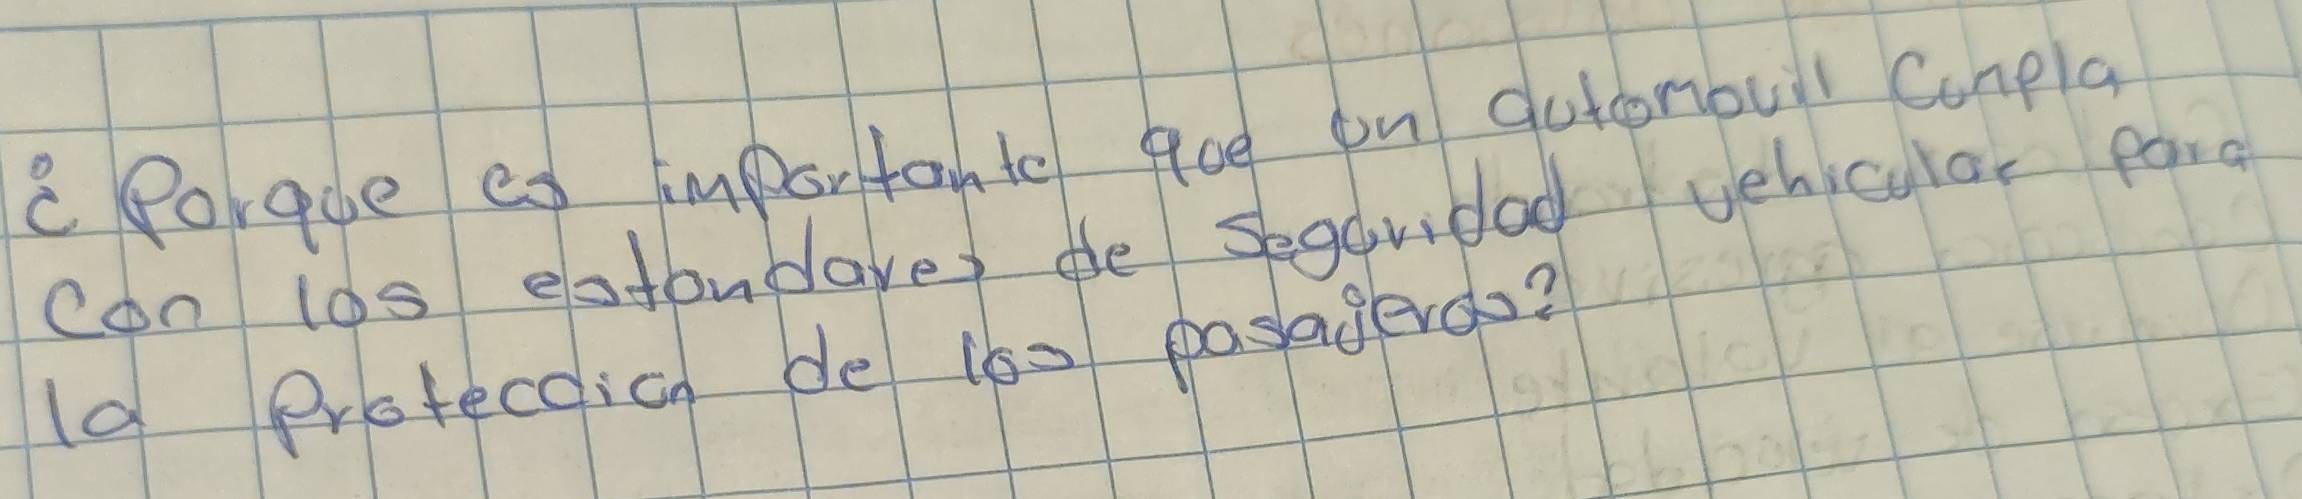 ¿Porque es importante que un automovil Cunpla
con los estandares de seguridad vehicular para
la Protección de los pasajeros?